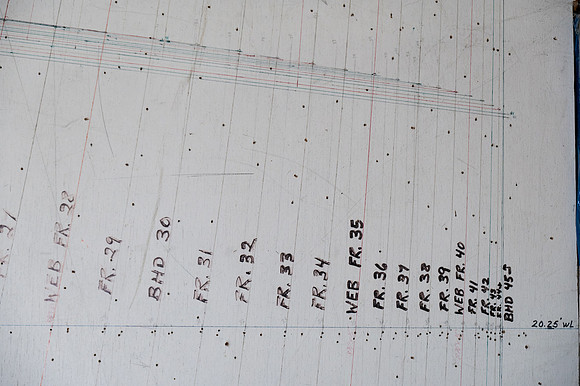 WEB FR. 28
FR. 29
BHD 30
FR. 31
FR. 32
FR. 33
FR. 34
WEB FR. 35
FR. 36
FR. 37
FR. 38
FR. 39
WEB FR. 40
FR. 41
FR. 42
FR. 43
BHD 45.5
20.25' WL